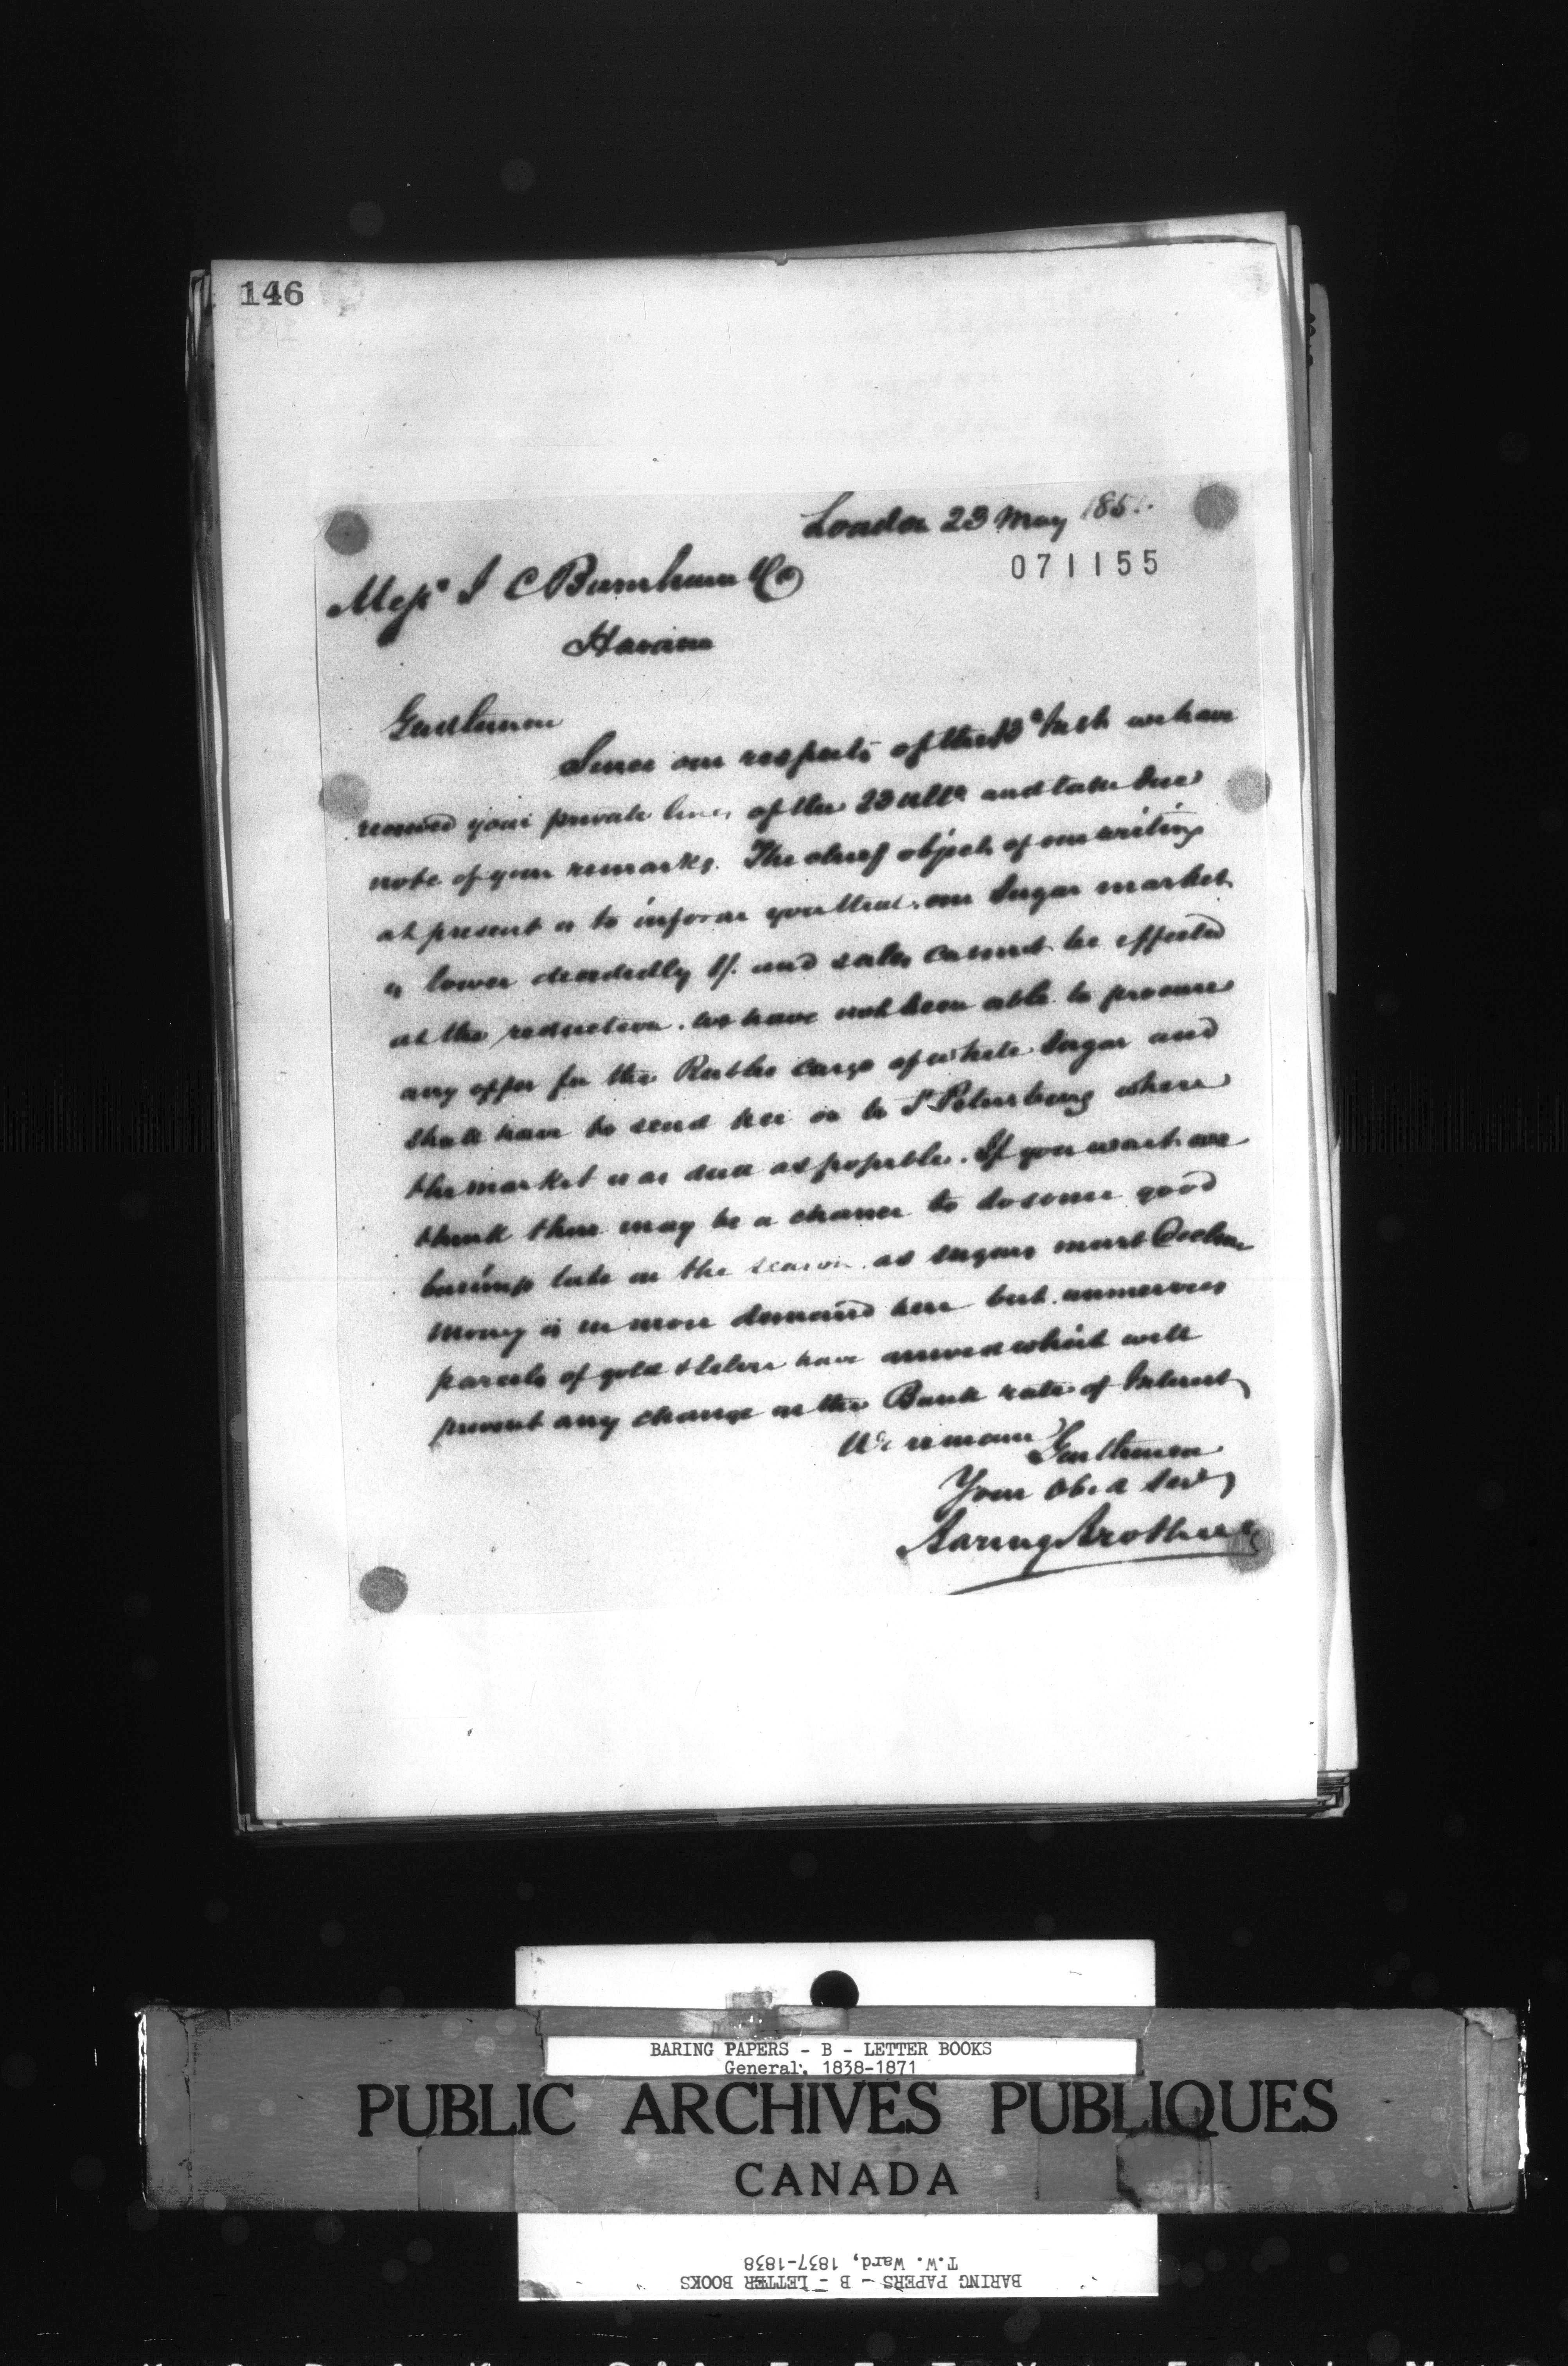 146
London 23 May 185
071155
Messrs J C Burnham & Co
Havana
Gentlemen
Since our respects of the Inst we have
received your private lines of the 23 ulto and take due
note of your remarks. The chief object of our writing
at present is to inform you that our Sugar market
is lower decidedly 1/. and sales cannot be effected
at the reduction. We have not been able to procure
any offer for the cargo of white Sugar and
shall have to send her on to St Petersburg where
the market is as dull as possible. If you wait we
think there may be a chance to do some good
business late in the season as sugars must decline
Money is in more demand here but numerous
parcels of gold & silver have arrived which will
prevent any change in the Bank rate of Interest
We remain Gentlemen
Your Obed Servts
Baring Brothers
BARING PAPERS - B - LETTER BOOKS
General, 1838-1871
PUBLIC ARCHIVES PUBLIQUES
CANADA
T.W. Ward, 1837-1838
BARING PAPERS - B - LETTER BOOKS